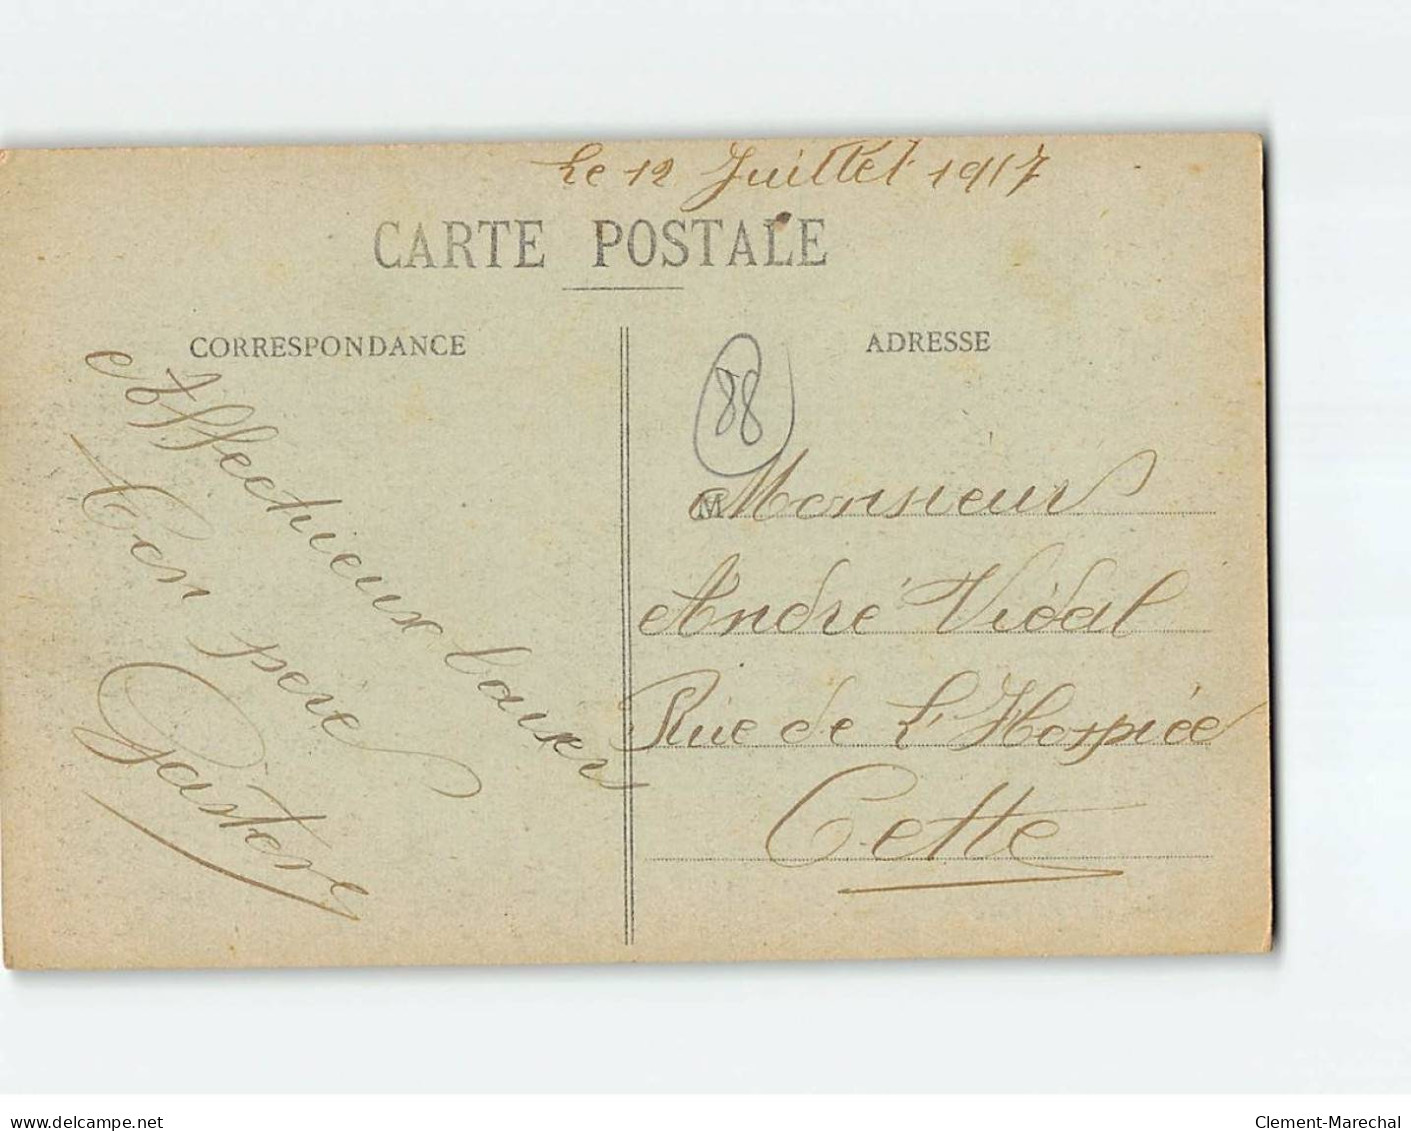 Le 12 Juillet 1917
CARTE POSTALE
CORRESPONDANCE
Affectueux baisers
ton père
Gaston
ADRESSE
88
M Monsieur
André Vidal
Rue de L'Hospice
Cette
delcampe.net
Clement-Marechal